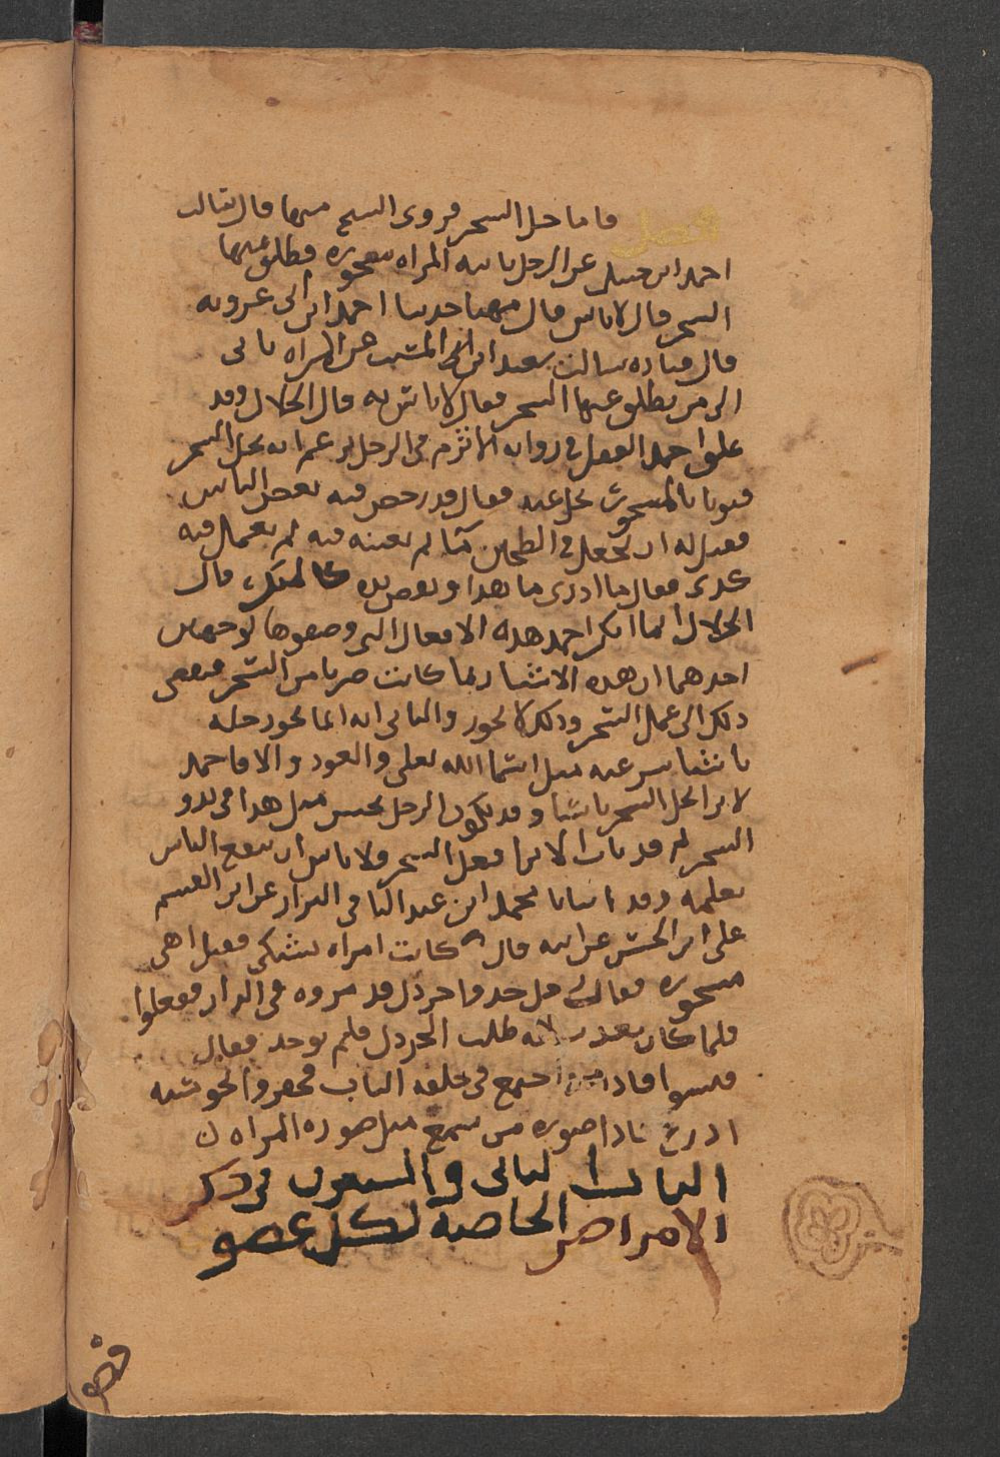 فصل فاما حل السحر فروى الشيخ مهنا قال سالت
احمد ابن حنبل عن الرجل ياتيه المراه مسحوره فيطلق عنها
السحر قال لاباس قال مهنا حدثنا احمد ابن ابى عروبه
قال قتاده سالت سعيد ابن المسيب عن المراه ياتى
الى من يطلق عنها السحر فقال لاباس به قال الخلال وقد
علق احمد القول فى روايه الاثرم فى الرجل يزعم انه يحل السحر
فيوتا بالمسحور يحل عنه فقال قد رخص فيه بعض الناس
فقيل له ان يجعل فى الطنجير ما ثم يغيب فيه ثم يعمل فيه
كذى فقال ما ادرى ما هذا ونفض يده كالمنكر، قال
الخلال انما انكر احمد هذه الافعال التى وصفوها لوجهين
احدهما ان هذه الاشيا ربما كانت ضربا من السحر فيفضى
ذلك الى عمل السحر وذلك لا يجوز والثانى انه انما يجوز حله
باشيا شرعيه مثل اسما الله تعلى والعوذ والا فاحمد
لا يرا بحل السحر باسا وقد يكون الرجل يحسن مثل هذا فى بدو
السحر ثم قد تاب الا يرا فعل السحر ولا باس ان ينفع الناس
بعلمه وقد انبانا محمد ابن عبد الباقى البزار عن ابى القسم
على ابن المحسن عن ابيه قال كانت امراه تشتكى فقيل هى
مسحوره فقال لى خذوا خردل فذروه فى الدار ففعلوا
فلما كان بعد لانه طلب الخردل فلم يوجد فقال
فتشوا فاذا اجتمع فى حلقه الباب فحفروا تحو عتبه
فاذا صوره من شمع مثل صوره المراه ن
الباب الثانى والسبعون فى ذكر
الامراض الخاصه لكل عضو
فصل